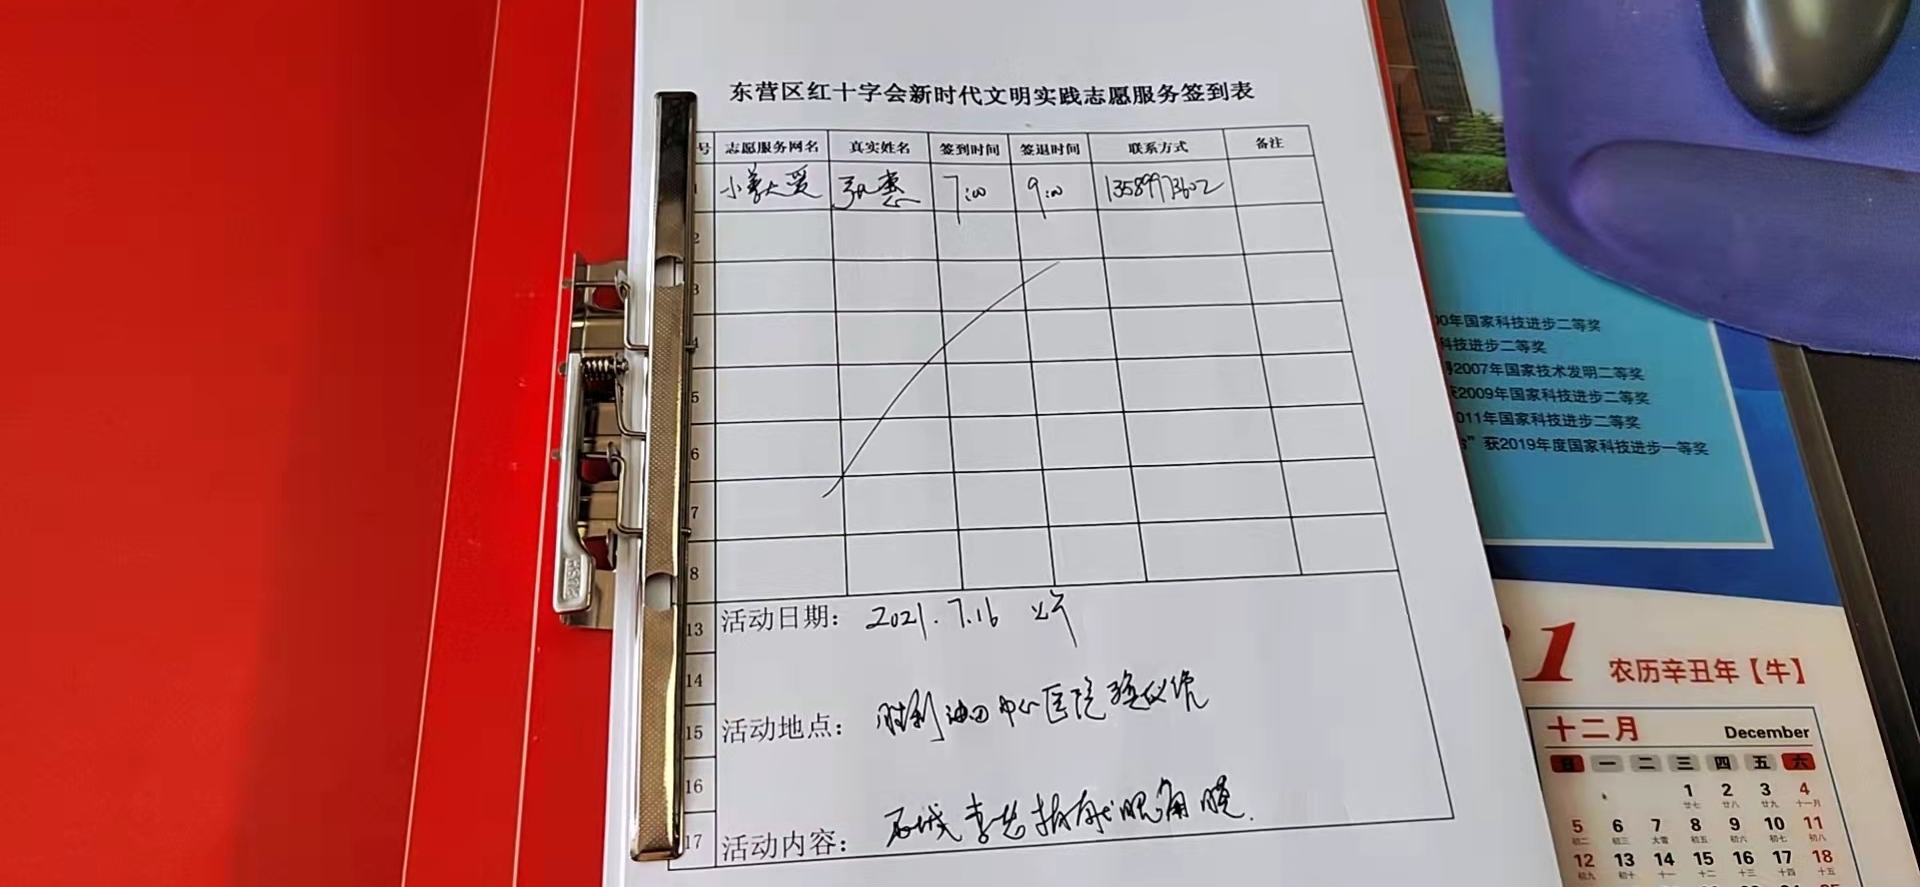 东营区红十字会新时代文明实践志愿服务签到表
号 志愿服务网名 真实姓名 签到时间 签退时间 联系方式 备注
1 小姜大爱 7:00 9:00 13589973602
2
3
4
5
6
7
8
13 活动日期： 2021.7.16
14
15 活动地点： 胜利油田中心医院殡仪馆
16
17 活动内容： 眼角膜.
00年国家科技进步二等奖
科技进步二等奖
2007年国家技术发明二等奖
获2009年国家科技进步二等奖
011年国家科技进步二等奖
” 获2019年度国家科技进步一等奖
1 农历辛丑年【牛】
十二月 December
日 一 二 三 四 五 六
1 2 3 4
廿七 廿八 廿九 十一月
5 6 7 8 9 10 11
初二 初三 大雪 初五 初六 初七 初八
12 13 14 15 16 17 18
初九 初十 十一 十二 十三 十四 十五